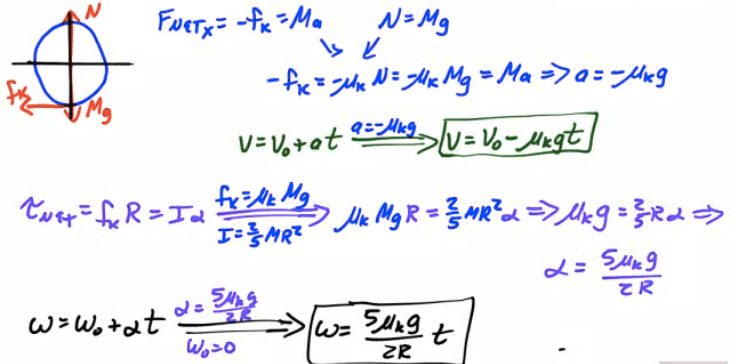 N
fₖ
Mg
F_NETx = -fₖ = Ma    N = Mg
-fₖ = -μₖ N = -μₖ Mg = Ma => a = -μₖg
V = V₀ + at  a = -μₖg =>  V = V₀ - μₖgt
τ_NET = fₖ R = Iα  fₖ = μₖ Mg  I = 2/5 MR² =>  μₖ Mg R = 2/5 MR² α => μₖg = 2/5 Rα =>
α = 5μₖg / 2R
ω = ω₀ + αt  α = 5μₖg / 2R  ω₀ = 0 =>  ω = 5μₖg / 2R t